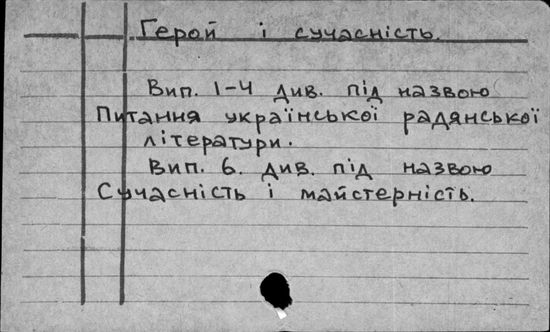 Герой і сучасність.
Вип. 1-4 див. під назвою
Питання української радянської
літератури.
Вип. 6. див. під назвою
Сучасність і майстерність.